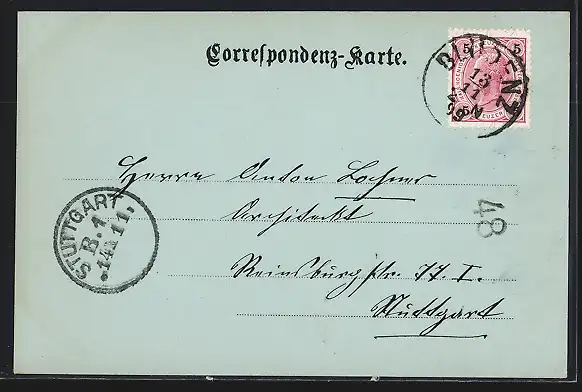 Correspondenz-Karte.
5 5
BLUDENZ
13
11
98
5N
KREUZER
Herrn Anton Lochner
Architekt
Reinsburgstr. 77. I.
Stuttgart
STUTTGART
B. 1
14 11.
48